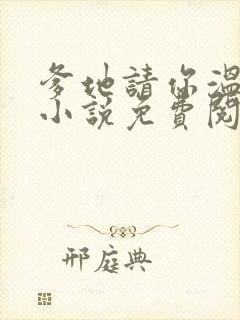 爹地請你溫
小說免費閱
邢庭典